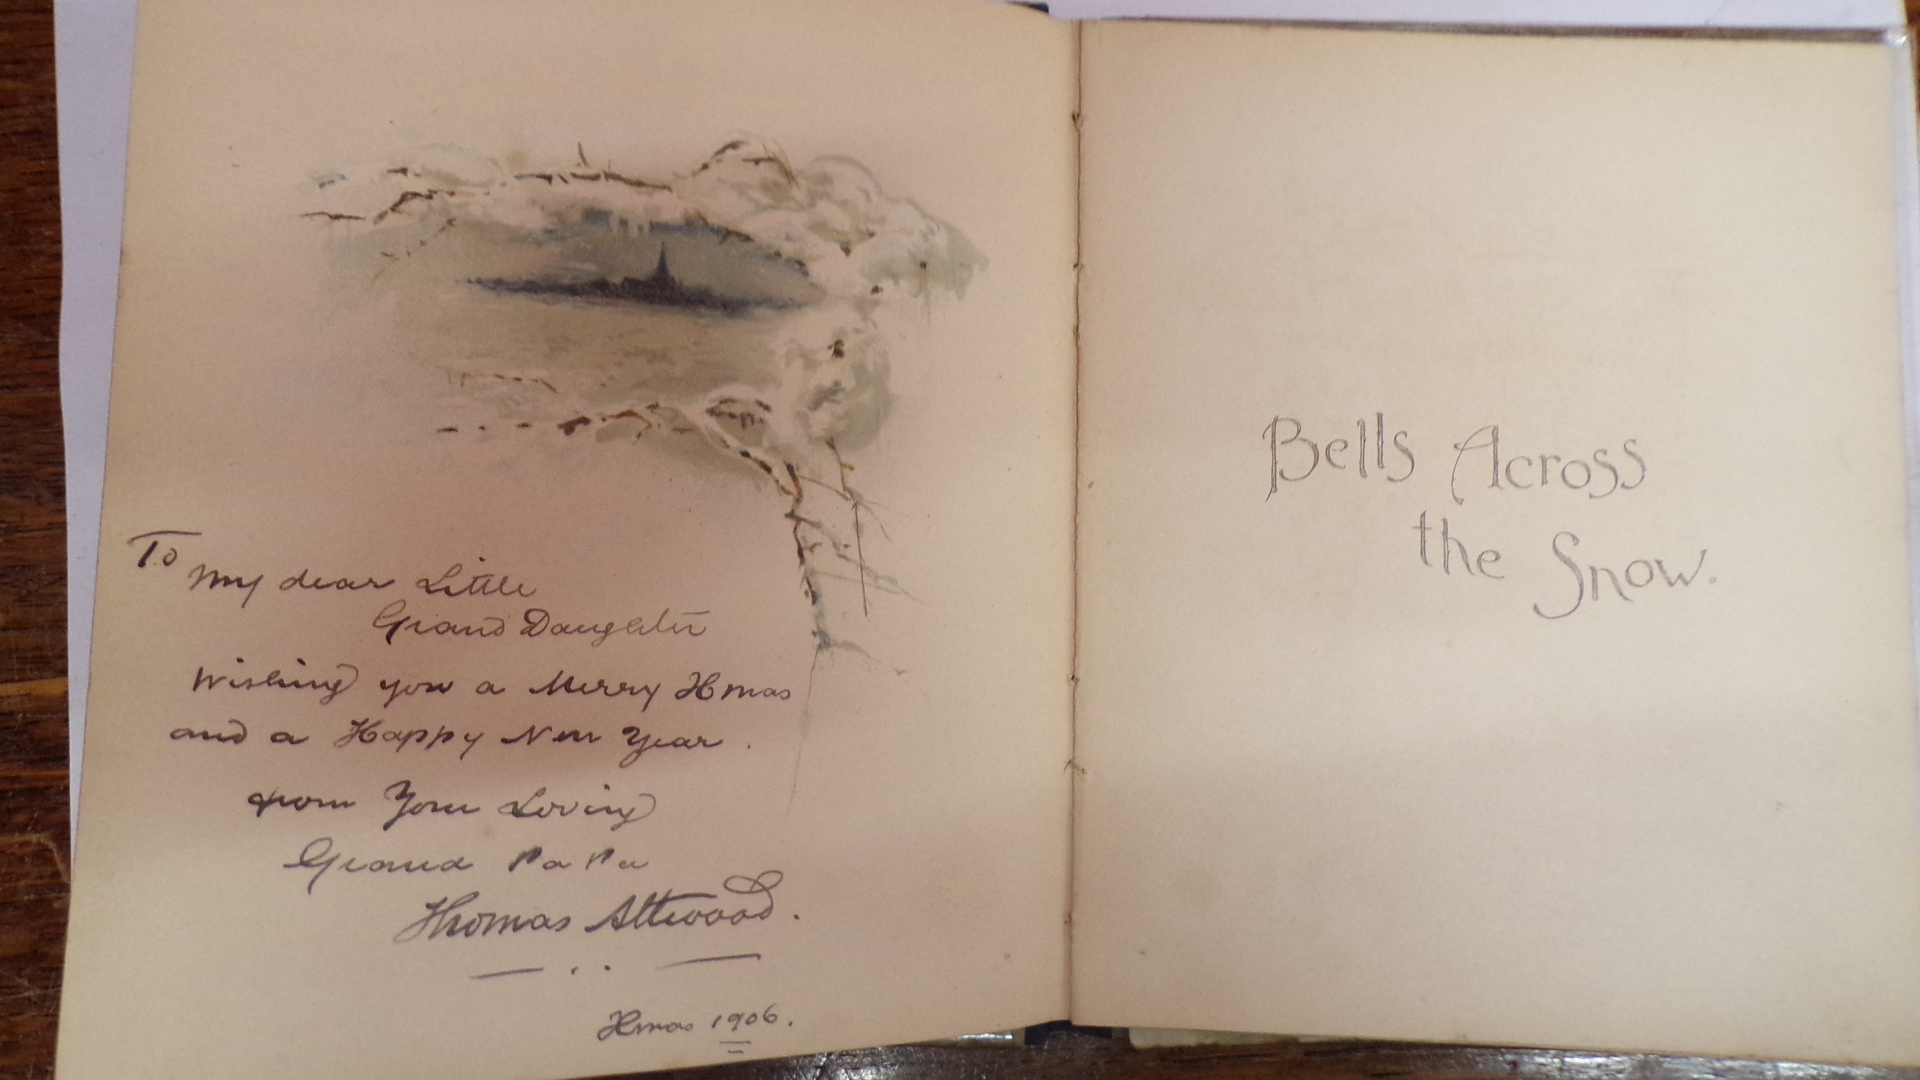 To
My dear Little
Grand Daughter
Wishing you a Merry Xmas
and a Happy New Year.
from Your Loving
Grand Pa Pa
Thomas Attwood.
Xmas 1906.
Bells Across
the Snow.